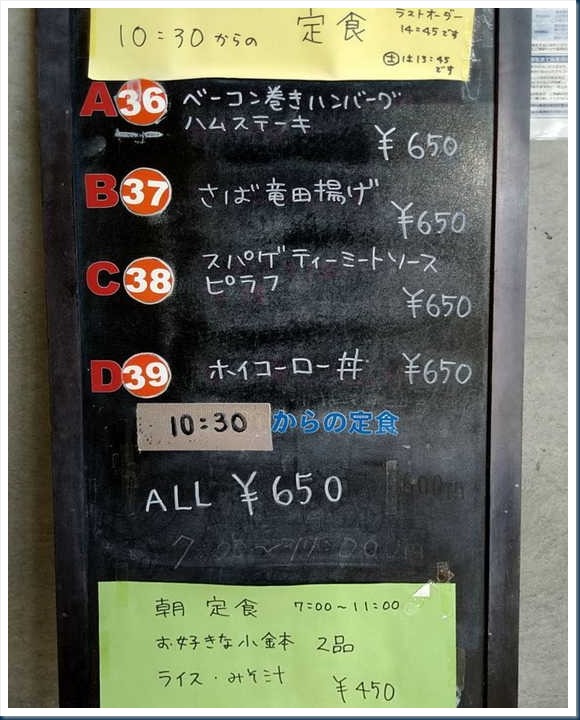 10:30 からの 定食
ラストオーダー
14:45です
㊏は13:45
です
A 36 ベーコン巻きハンバーグ
ハムステーキ
¥650
B 37 さば竜田揚げ
¥650
C 38 スパゲティーミートソース
ピラフ
¥650
D 39 ホイコーロー丼 ¥650
10:30 からの定食
ALL ¥650
朝 定食 7:00~11:00
お好きな小鉢本 2品
ライス・みそ汁
¥450